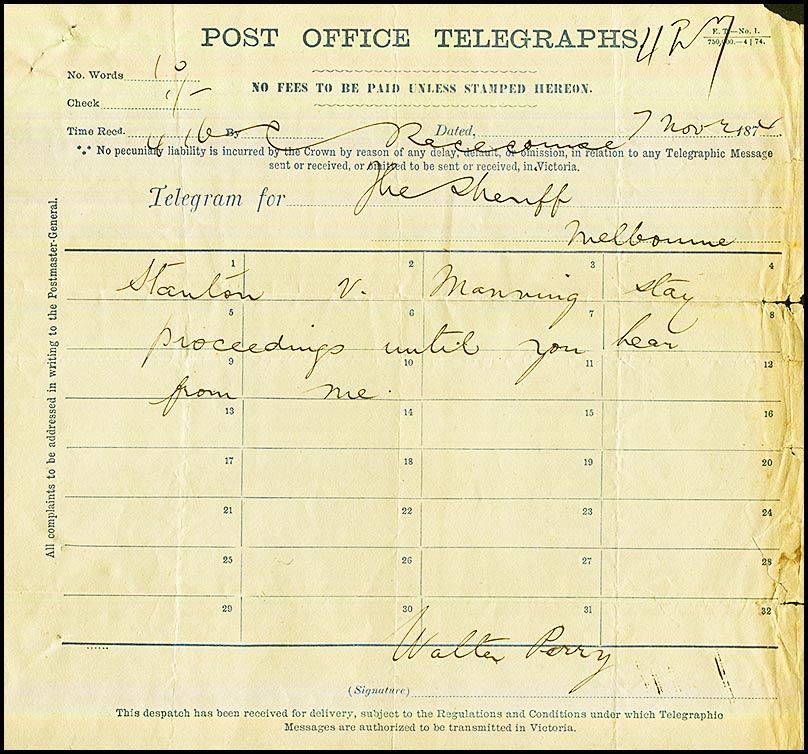 POST OFFICE TELEGRAPHS.
E. T.—No. 1.
750,000.—4 | 74.
No. Words 10
NO FEES TO BE PAID UNLESS STAMPED HEREON.
Check 1/-
Time Recd. 4 16 By Dated, Racecourse 7 Novr 1874
*.* No pecuniary liability is incurred by the Crown by reason of any delay, default, or omission, in relation to any Telegraphic Message
sent or received, or omitted to be sent or received, in Victoria.
Telegram for The Sheriff
Melbourne
1 2 3 4
Stanton v. Manning stay
5 6 7 8
proceedings until you hear
9 10 11 12
from me.
13 14 15 16
17 18 19 20
21 22 23 24
25 26 27 28
29 30 31 32
Walter Perry
(Signature)
This despatch has been received for delivery, subject to the Regulations and Conditions under which Telegraphic
Messages are authorized to be transmitted in Victoria.
All complaints to be addressed in writing to the Postmaster-General.